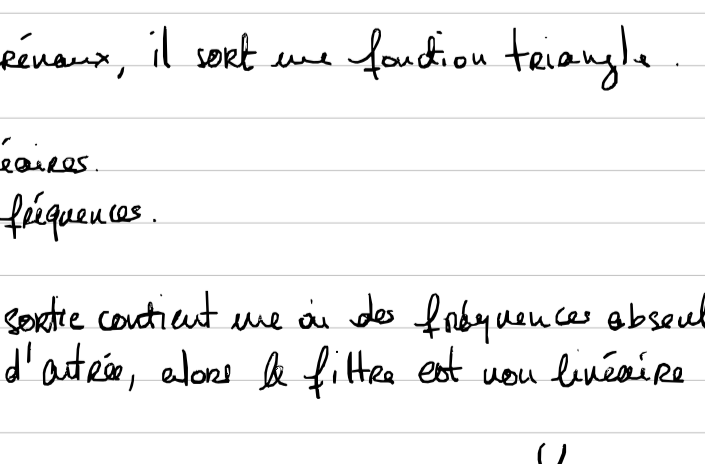 rénaux, il sort une fonction triangle.
éaires.
fréquences.
sortie contient une ou des fréquences absent
d'entrée, alors le filtre est non linéaire